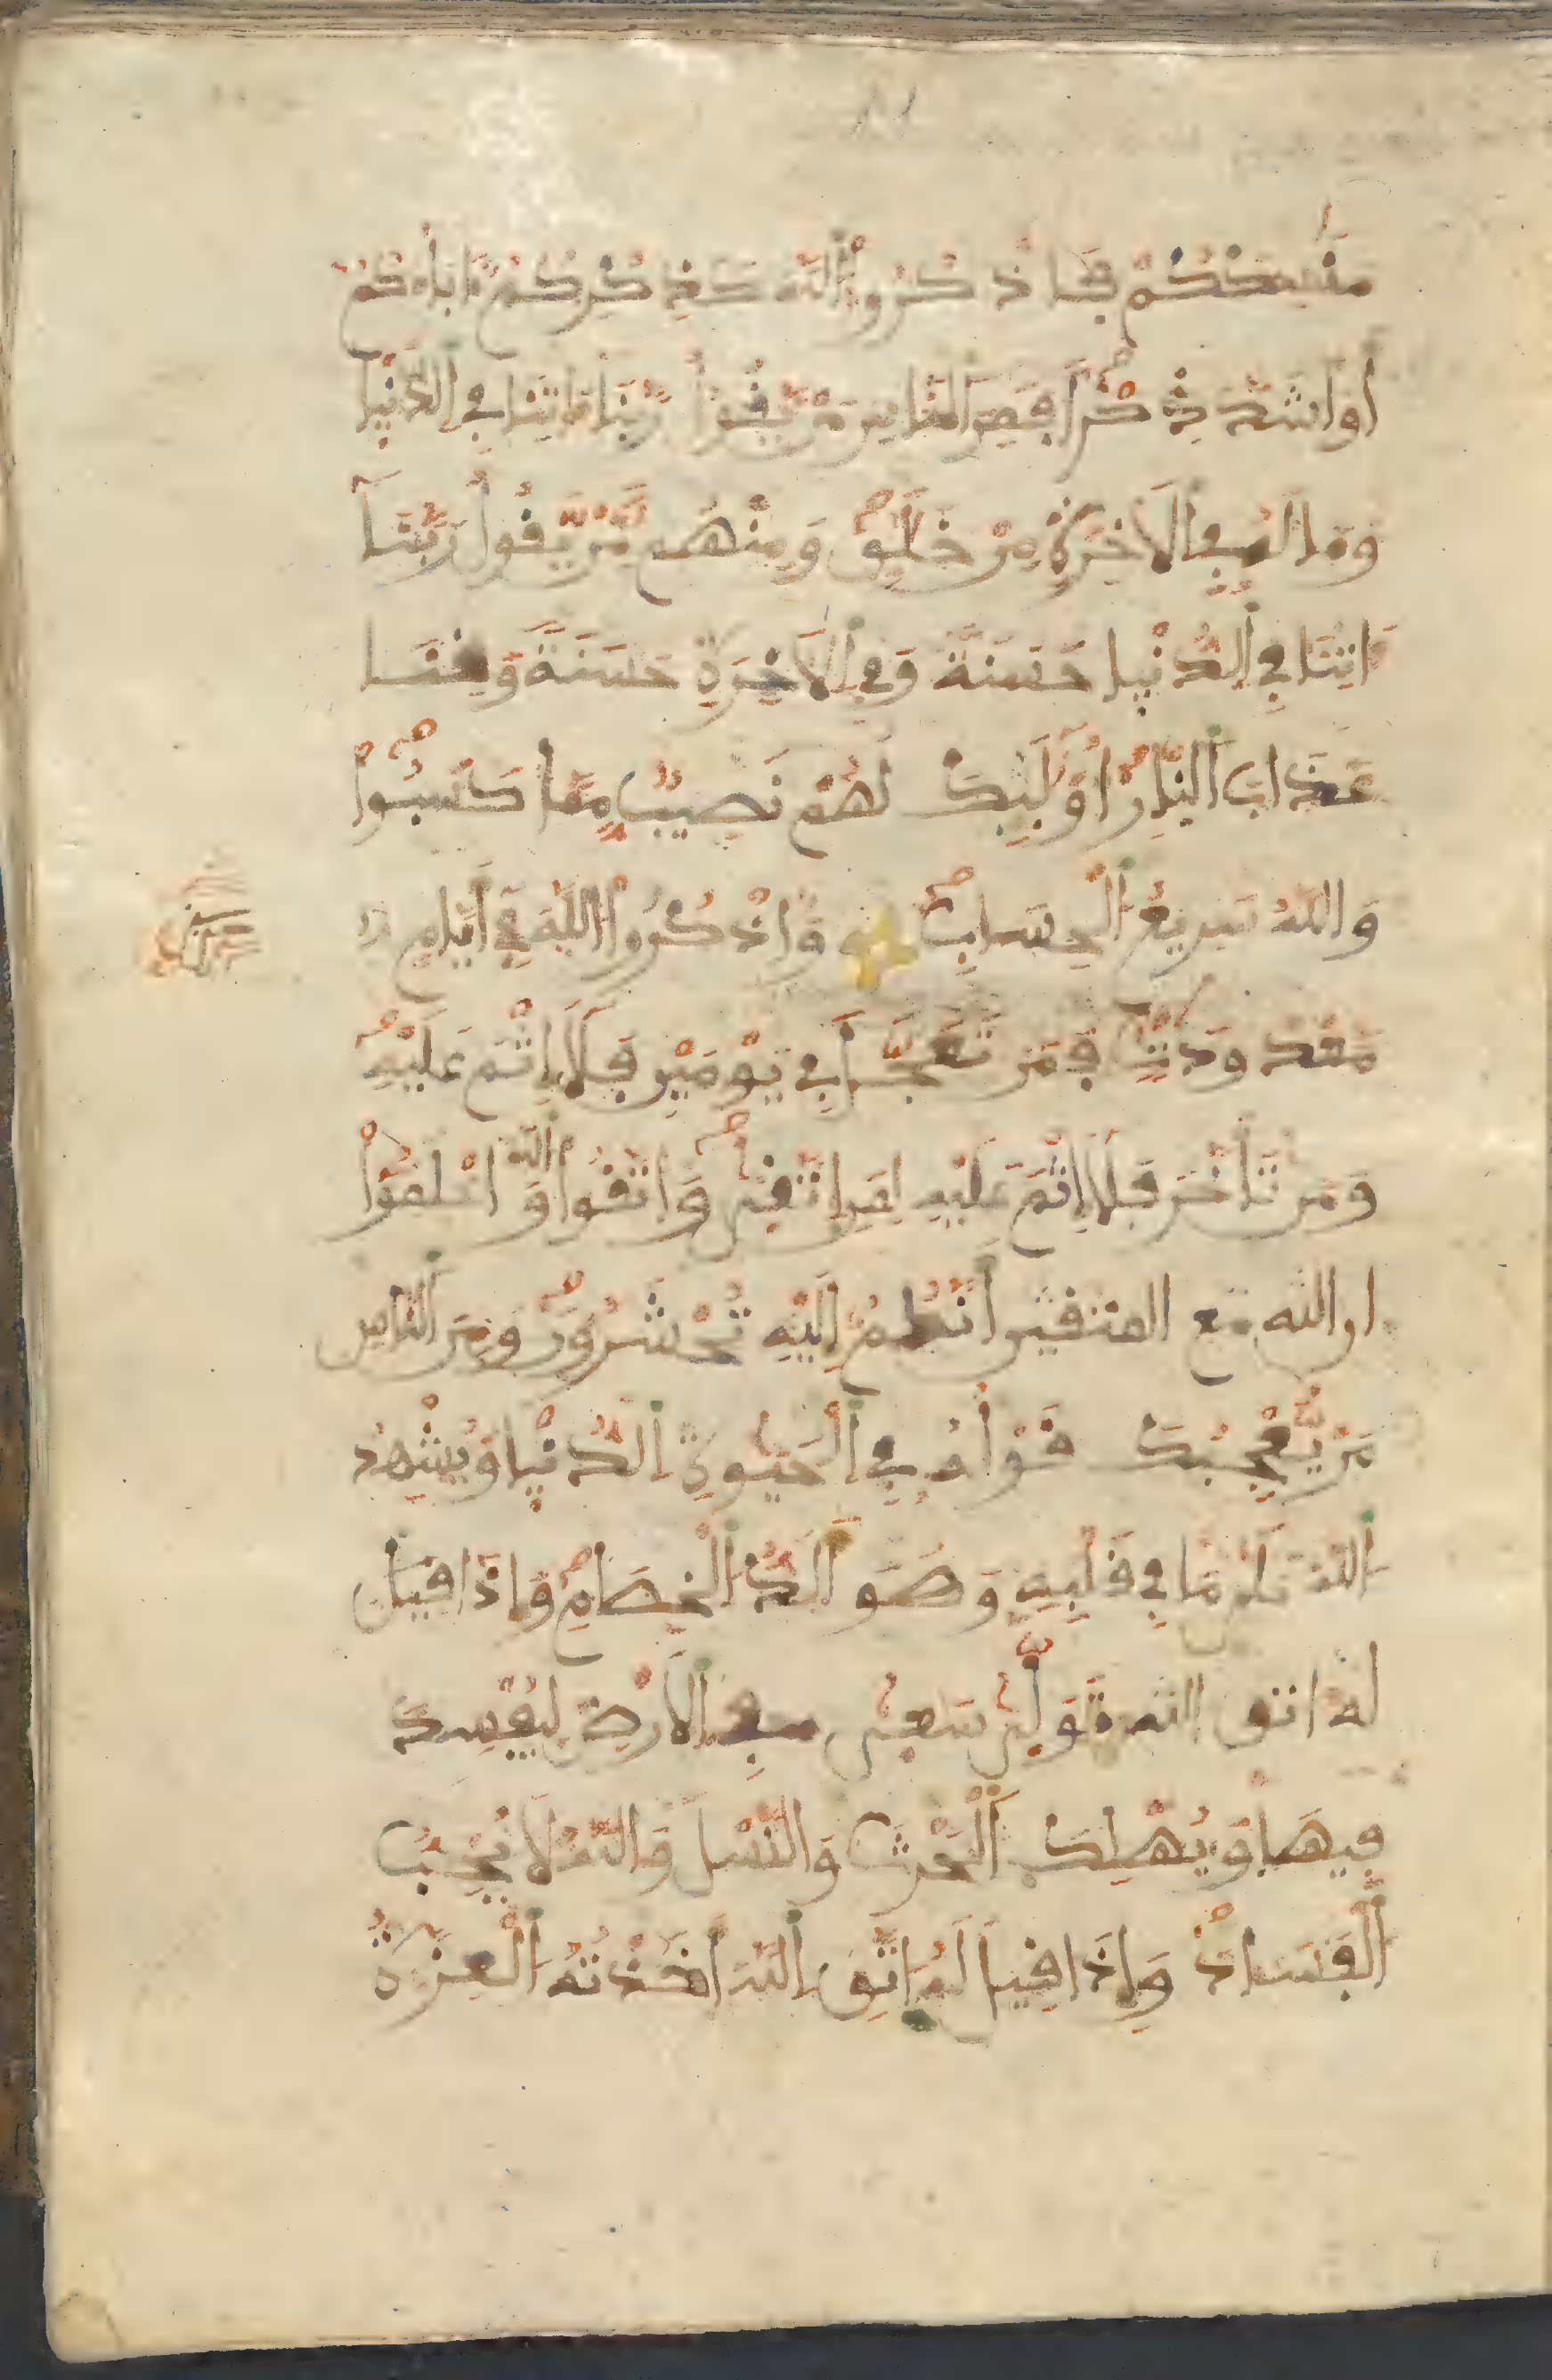 مَّنَٰسِككُمْ فَاذْكُرُواْ اللَّهَ كَذِكْرِكُمُ ءَابَآءَكُمُ
أَوَ اَشَدَّ ذِكْرًا فَمِنَ النَّاسِ مَنْ يَّقُولُ رَبَّنَا ءَاتِنَا فِي الدُّنْيَا
وَمَا لَهُ فِي الَاخِرَةِ مِنْ خَلَٰقٍ وَمِنْهُم مَّنْ يَّقُولُ رَبَّنَا
ءَاتِنَا فِي الدُّنْيَا حَسَنَةً وَفِي الَاخِرَةِ حَسَنَةً وَقِنَا
عَذَابَ النَّارِ أُوْلَٰئِكَ لَهُمْ نَصِيبٌ مِّمَّا كَسَبُواْ
وَاللَّهُ سَرِيعُ الْحِسَابِ وَاذْكُرُواْ اللَّهَ فِي أَيَّامٍ
مَّعْدُودَٰتٍ فَمَن تَعَجَّلَ فِي يَوْمَيْنِ فَلَا إِثْمَ عَلَيْهِ
وَمَن تَأَخَّرَ فَلَا إِثْمَ عَلَيْهِ لِمَنِ اتَّقَىٰ وَاتَّقُواْ اللَّهَ وَاعْلَمُواْ
ان اللَّه مع المتقين أَنَّكُمُ إِلَيْهِ تُحْشَرُونَ وَمِنَ النَّاسِ
مَنْ يُّعْجِبُكَ قَوْلُهُ فِي الْحَيَوٰةِ الدُّنْيَا وَيُشْهِدُ
اللَّهَ عَلَىٰ مَا فِي قَلْبِهِ وَهُوَ أَلَدُّ الْخِصَامِ وَإِذَا قِيلَ
له اتق اللَّه تَوَلَّىٰ سَعَىٰ فِي الَارْضِ لِيُفْسِدَ
فِيهَا وَيُهْلِكَ الْحَرْثَ وَالنَّسْلَ وَاللَّهُ لَا يُحِبُّ
الْفَسَادَ وَإِذَا قِيلَ لَهُ اتَّقِ اللَّهَ أَخَذَتْهُ الْعِزَّةُ